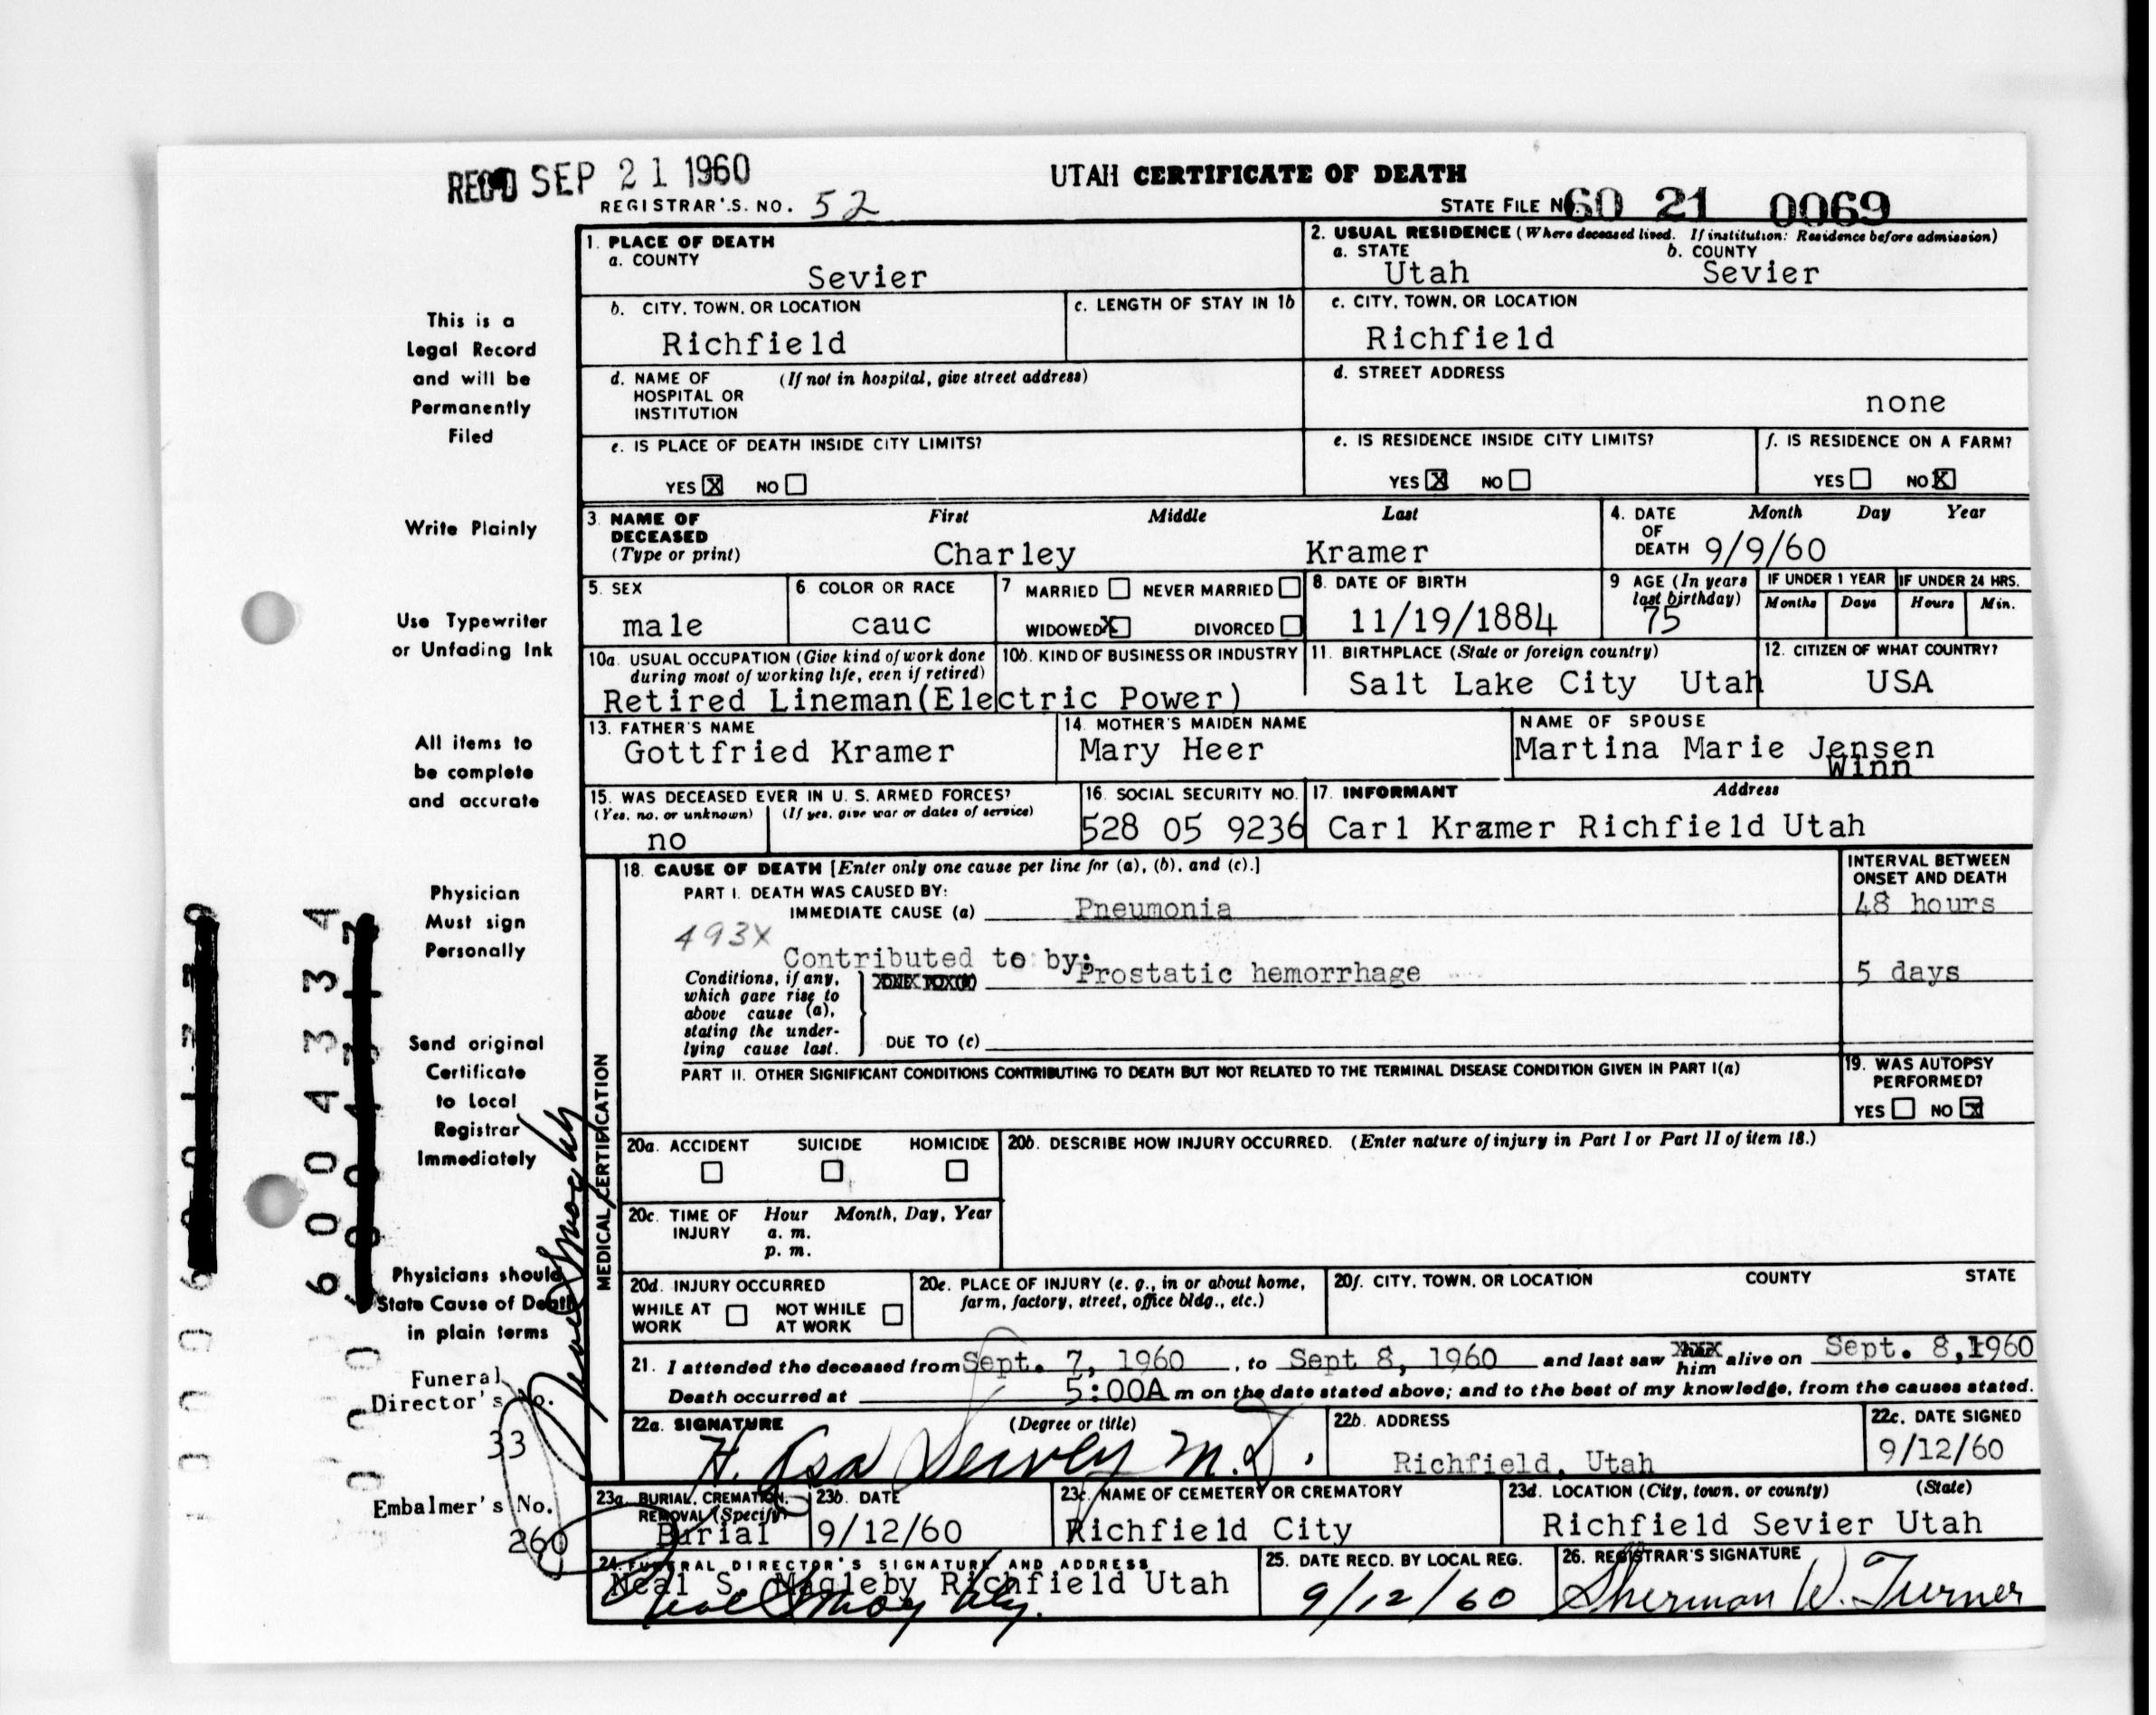 REC'D SEP 21 1960
UTAH CERTIFICATE OF DEATH
REGISTRAR'S. NO. 52
STATE FILE NO. 60 21 0069
This is a
Legal Record
and will be
Permanently
Filed
Write Plainly
Use Typewriter
or Unfading Ink
All items to
be complete
and accurate
Physician
Must sign
Personally
Send original
Certificate
to Local
Registrar
Immediately
Physicians should
State Cause of Death
in plain terms
Funeral
Director's No.
33
Embalmer's No.
260
6004334
1. PLACE OF DEATH
a. COUNTY
Sevier
2. USUAL RESIDENCE (Where deceased lived. If institution: Residence before admission)
a. STATE b. COUNTY
Utah Sevier
b. CITY, TOWN, OR LOCATION
Richfield
c. LENGTH OF STAY IN 1b
c. CITY, TOWN, OR LOCATION
Richfield
d. NAME OF (If not in hospital, give street address)
HOSPITAL OR
INSTITUTION
d. STREET ADDRESS
none
e. IS PLACE OF DEATH INSIDE CITY LIMITS?
YES X NO
e. IS RESIDENCE INSIDE CITY LIMITS?
YES X NO
f. IS RESIDENCE ON A FARM?
YES NO X
3. NAME OF First Middle Last
DECEASED
(Type or print) Charley Kramer
4. DATE Month Day Year
OF
DEATH 9/9/60
5. SEX
male
6. COLOR OR RACE
cauc
7 MARRIED NEVER MARRIED
WIDOWED X DIVORCED
8. DATE OF BIRTH
11/19/1884
9 AGE (In years
last birthday)
75
IF UNDER 1 YEAR IF UNDER 24 HRS.
Months Days Hours Min.
10a. USUAL OCCUPATION (Give kind of work done
during most of working life, even if retired)
10b. KIND OF BUSINESS OR INDUSTRY
Retired Lineman(Electric Power)
11. BIRTHPLACE (State or foreign country)
Salt Lake City Utah
12. CITIZEN OF WHAT COUNTRY?
USA
13. FATHER'S NAME
Gottfried Kramer
14. MOTHER'S MAIDEN NAME
Mary Heer
NAME OF SPOUSE
Martina Marie Jensen
Winn
15. WAS DECEASED EVER IN U. S. ARMED FORCES?
(Yes, no, or unknown) (If yes, give war or dates of service)
no
16. SOCIAL SECURITY NO.
528 05 9236
17. INFORMANT Address
Carl Kramer Richfield Utah
MEDICAL CERTIFICATION
18. CAUSE OF DEATH [Enter only one cause per line for (a), (b), and (c).]
INTERVAL BETWEEN
ONSET AND DEATH
PART I. DEATH WAS CAUSED BY:
IMMEDIATE CAUSE (a) Pneumonia 48 hours
493X
Contributed to by:
Prostatic hemorrhage 5 days
Conditions, if any,
which gave rise to
above cause (a),
stating the under-
lying cause last.
DUE TO (c)
PART II. OTHER SIGNIFICANT CONDITIONS CONTRIBUTING TO DEATH BUT NOT RELATED TO THE TERMINAL DISEASE CONDITION GIVEN IN PART I(a)
19. WAS AUTOPSY
PERFORMED?
YES NO X
20a. ACCIDENT SUICIDE HOMICIDE
20b. DESCRIBE HOW INJURY OCCURRED. (Enter nature of injury in Part I or Part II of item 18.)
20c. TIME OF Hour Month, Day, Year
INJURY a. m.
p. m.
20d. INJURY OCCURRED
WHILE AT NOT WHILE
WORK AT WORK
20e. PLACE OF INJURY (e. g., in or about home,
farm, factory, street, office bldg., etc.)
20f. CITY, TOWN, OR LOCATION COUNTY STATE
21. I attended the deceased from Sept. 7, 1960, to Sept 8, 1960 and last saw him alive on Sept. 8, 1960
Death occurred at 5:00A m on the date stated above; and to the best of my knowledge, from the causes stated.
22a. SIGNATURE (Degree or title)
H. Asa Dewey M.D.
22b. ADDRESS
Richfield, Utah
22c. DATE SIGNED
9/12/60
23a. BURIAL, CREMATION,
REMOVAL (Specify)
Burial
23b. DATE
9/12/60
23c. NAME OF CEMETERY OR CREMATORY
Richfield City
23d. LOCATION (City, town, or county) (State)
Richfield Sevier Utah
24. FUNERAL DIRECTOR'S SIGNATURE AND ADDRESS
Neal S. Magleby Richfield Utah
Neal S Magleby
25. DATE RECD. BY LOCAL REG.
9/12/60
26. REGISTRAR'S SIGNATURE
Sherman W. Turner